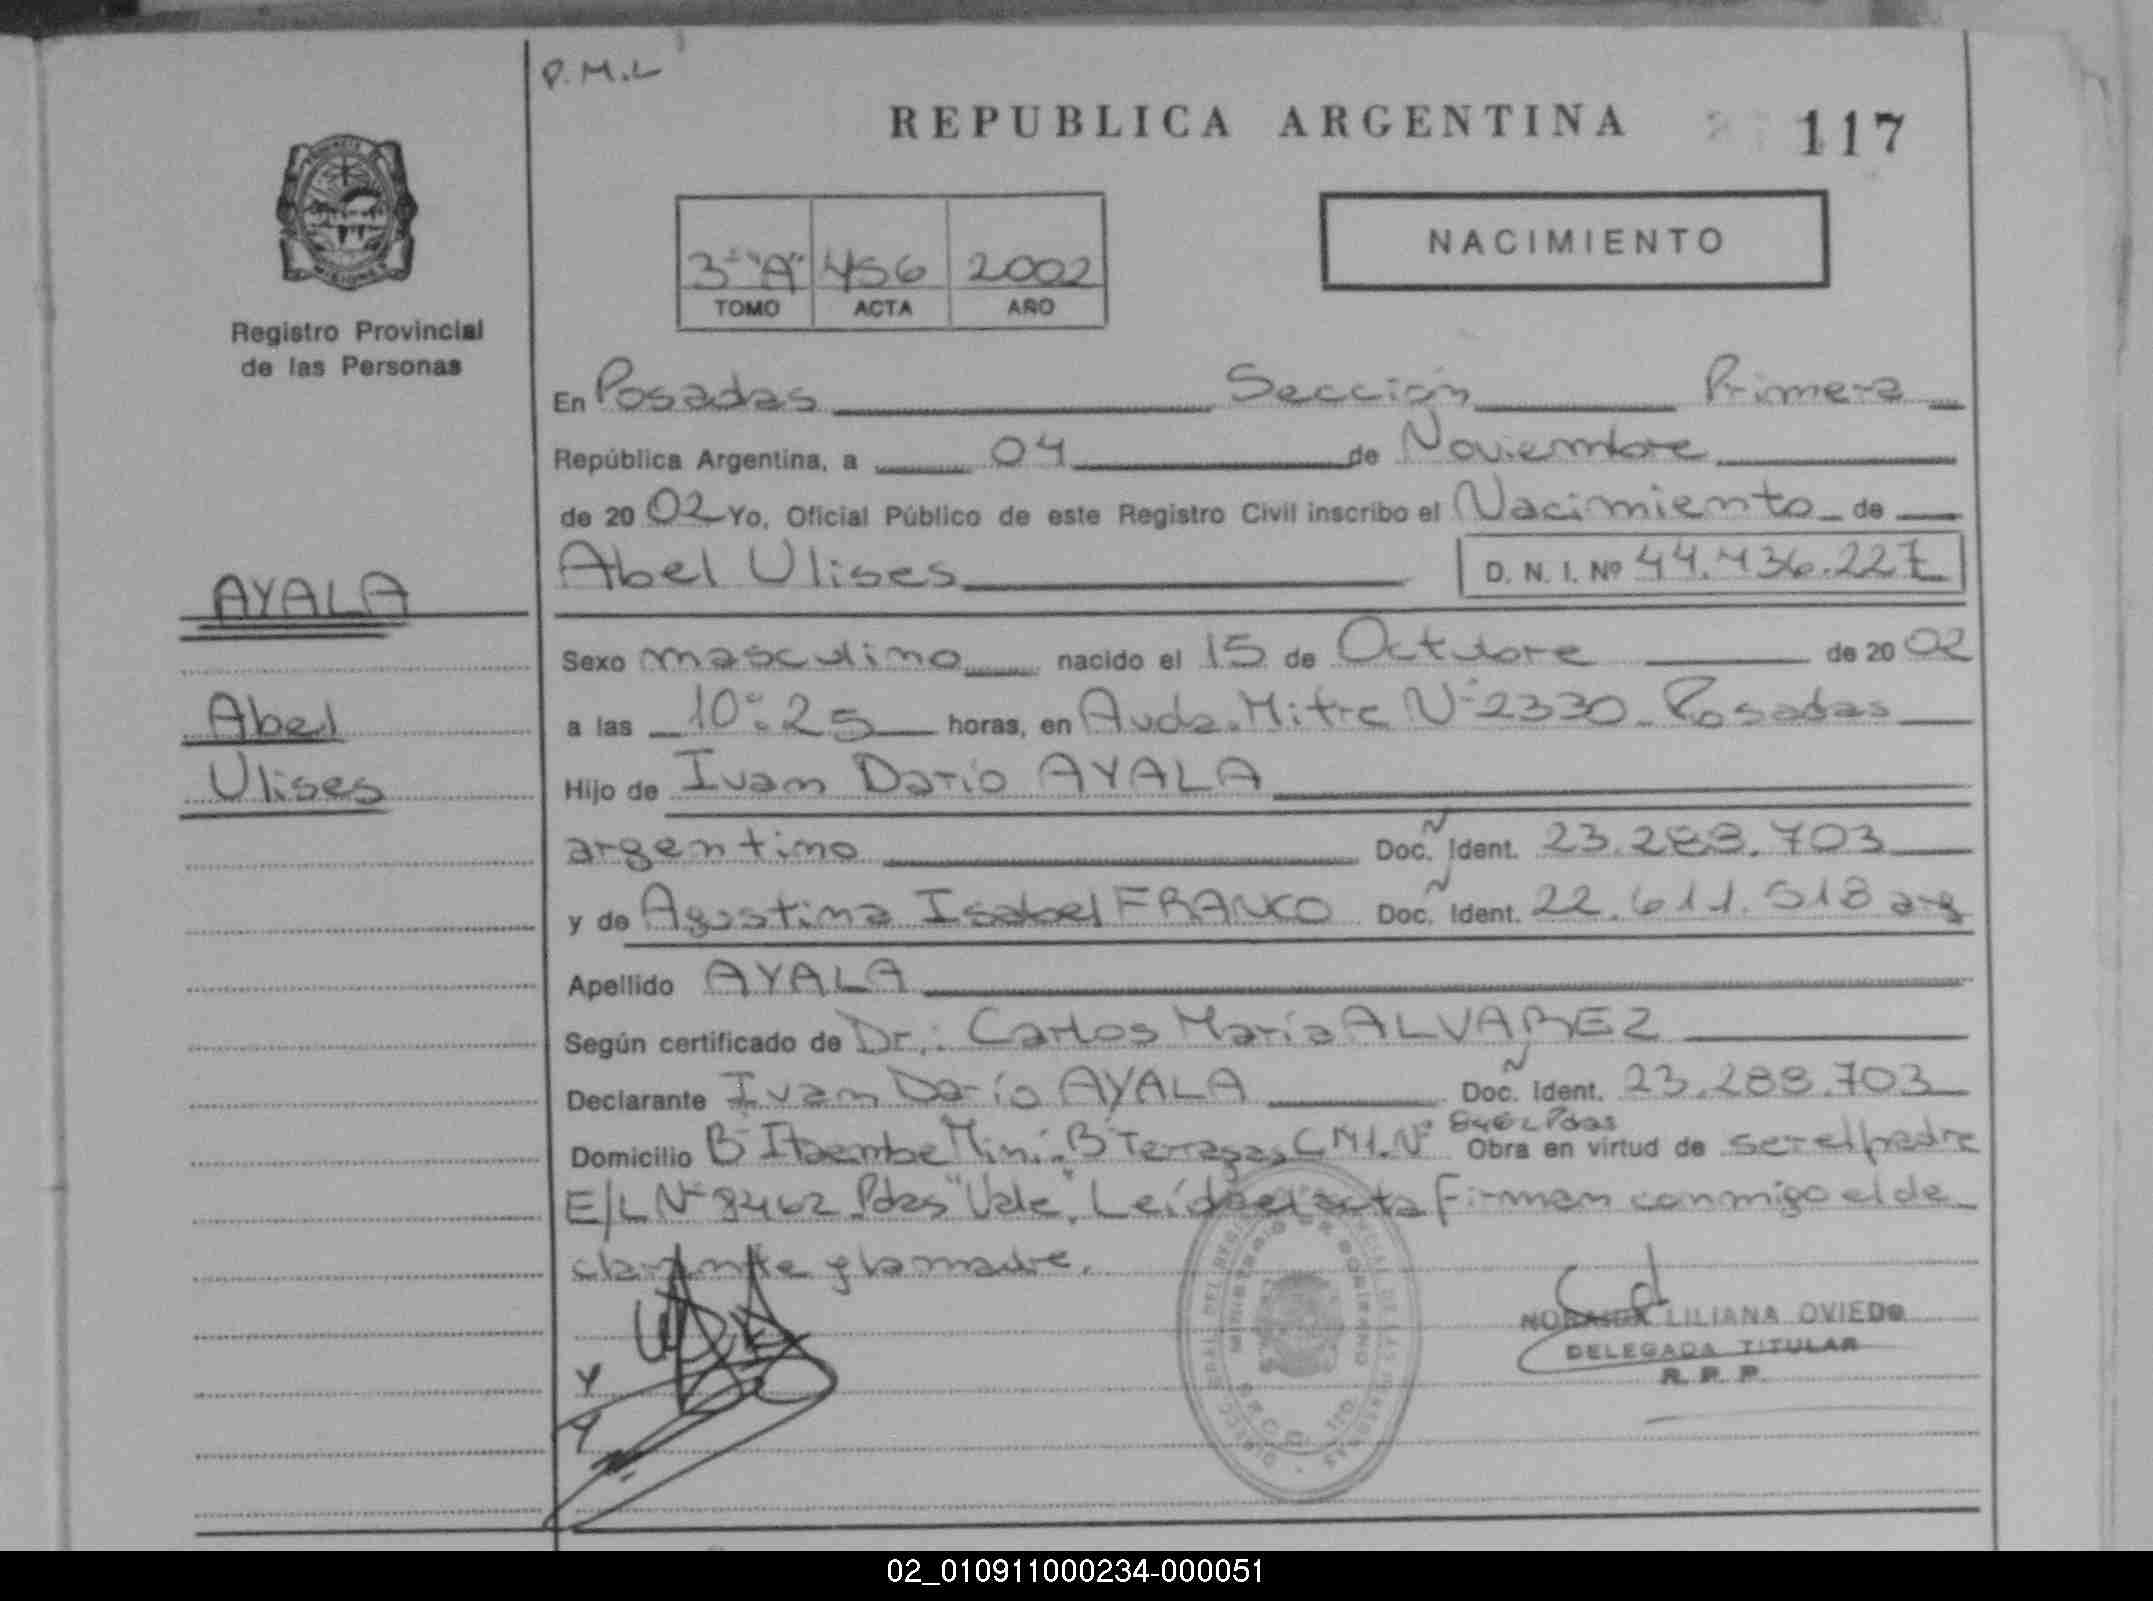 P.M.L
REPUBLICA ARGENTINA 117
NACIMIENTO
3º "A" 456 2002
TOMO ACTA AÑO
Registro Provincial
de las Personas
En Posadas Sección Primera
República Argentina, a 04 de Noviembre
de 2002 Yo, Oficial Público de este Registro Civil inscribo el Nacimiento de
Abel Ulises D. N. I. Nº 44.436.227
AYALA
Abel
Ulises
Sexo masculino nacido el 15 de Octubre de 2002
a las 10:25 horas, en Avda. Mitre Nº 2330 Posadas
Hijo de Ivan Dario AYALA
argentino Doc. Ident. 23.288.703
y de Agustina Isabel FRANCO Doc. Ident. 22.611.518 arg
Apellido AYALA
Según certificado de Dr.: Carlos María ALVAREZ
Declarante Ivan Darío AYALA Doc. Ident. 23.288.703
8462 Pdas
Domicilio Bº Itaembe Mini Bº Terrazas Nº Obra en virtud de ser el padre
E/L Nº 8462 Pdas "Vale". Leída el acta firman conmigo el de
clarante y la madre.
LILIANA OVIEDO
DELEGADA TITULAR
R. P. P.
02_010911000234-000051